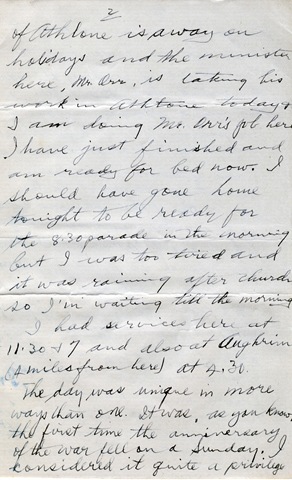 2
of Athlone is away on
holidays and the minister
here, Mr. Orr, is taking his
work in Athlone today &
I am doing Mr. Orr's job here
I have just finished and
am ready for bed now. I
should have gone home
tonight to be ready for
the 8.30 parade in the morning
but I was too tired and
it was raining after church
so I'm waiting till the morning
I had services here at
11.30 & 7 and also at Aughrim
(4 miles from here) at 4.30.
The day was unique in more
ways than one. It was, as you know,
the first time the anniversary
of the war fell on a Sunday. I
considered it quite a privilege